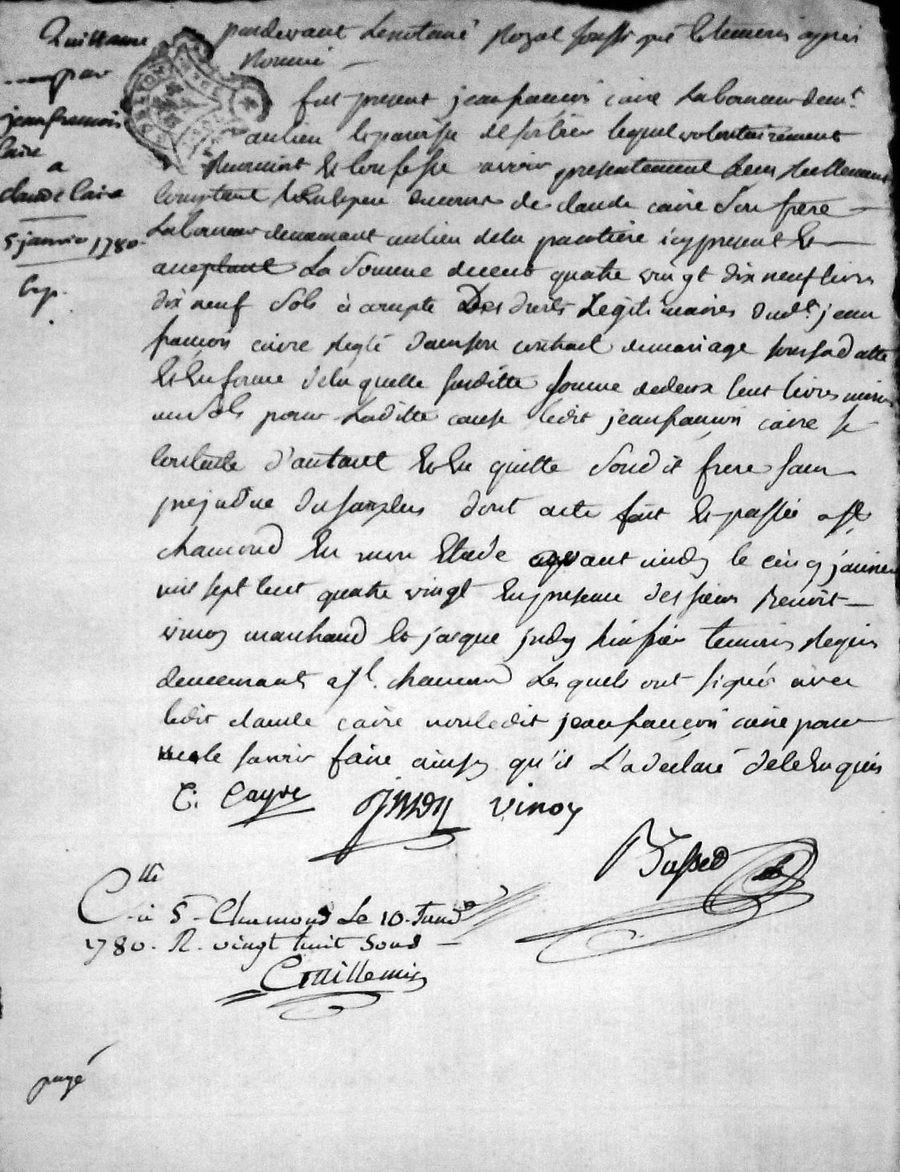 Quittance
par
jean francois
Caire
a
claude Caire
5 janvier 1780
Exp.
pardevant Le notaire Royal sous sigé et temoins apres
Nommé
fut present jean francois caire Laboureur demt.
au lieu et paroisse de lequel volontairement
Reconoit et Confesse avoir presentement Reçu Reellement
comptant et en espece de cours de claude caire Son frere
Laboureur demeurant au lieu de la icy present et
acceptant La Somme de cent quatre vingt dix neuf livres
dix neuf Sols à compte Des droits Legitimaires dudt. jean
françois caire Reglé dans son contract de mariage sous sa datte
et En forme de la quelle susditte Somme de deux Cent livres moins
un sols pour Laditte cause ledit jean françois caire se
Contente d'autant et En quitte Son dit frere sans
prejudice du surplus dont acte fait et passé a st.
chamond En mon Etude avant midy le cinq janvier
mil sept Cent quatre vingt En presence des sieurs Benoit
vinoy marchand et jacque temoins Requis
demeurant a st. chamond Lesquels ont signés avec
ledit claude caire non ledit jean françois caire pour
ne le savoir faire ainsy qu'il L'a declaré de ce Enquis
C. Cayre vinoy
C.lle
à St. Chamond Le 10. Janv.
1780. R. vingt huit Sous
payé